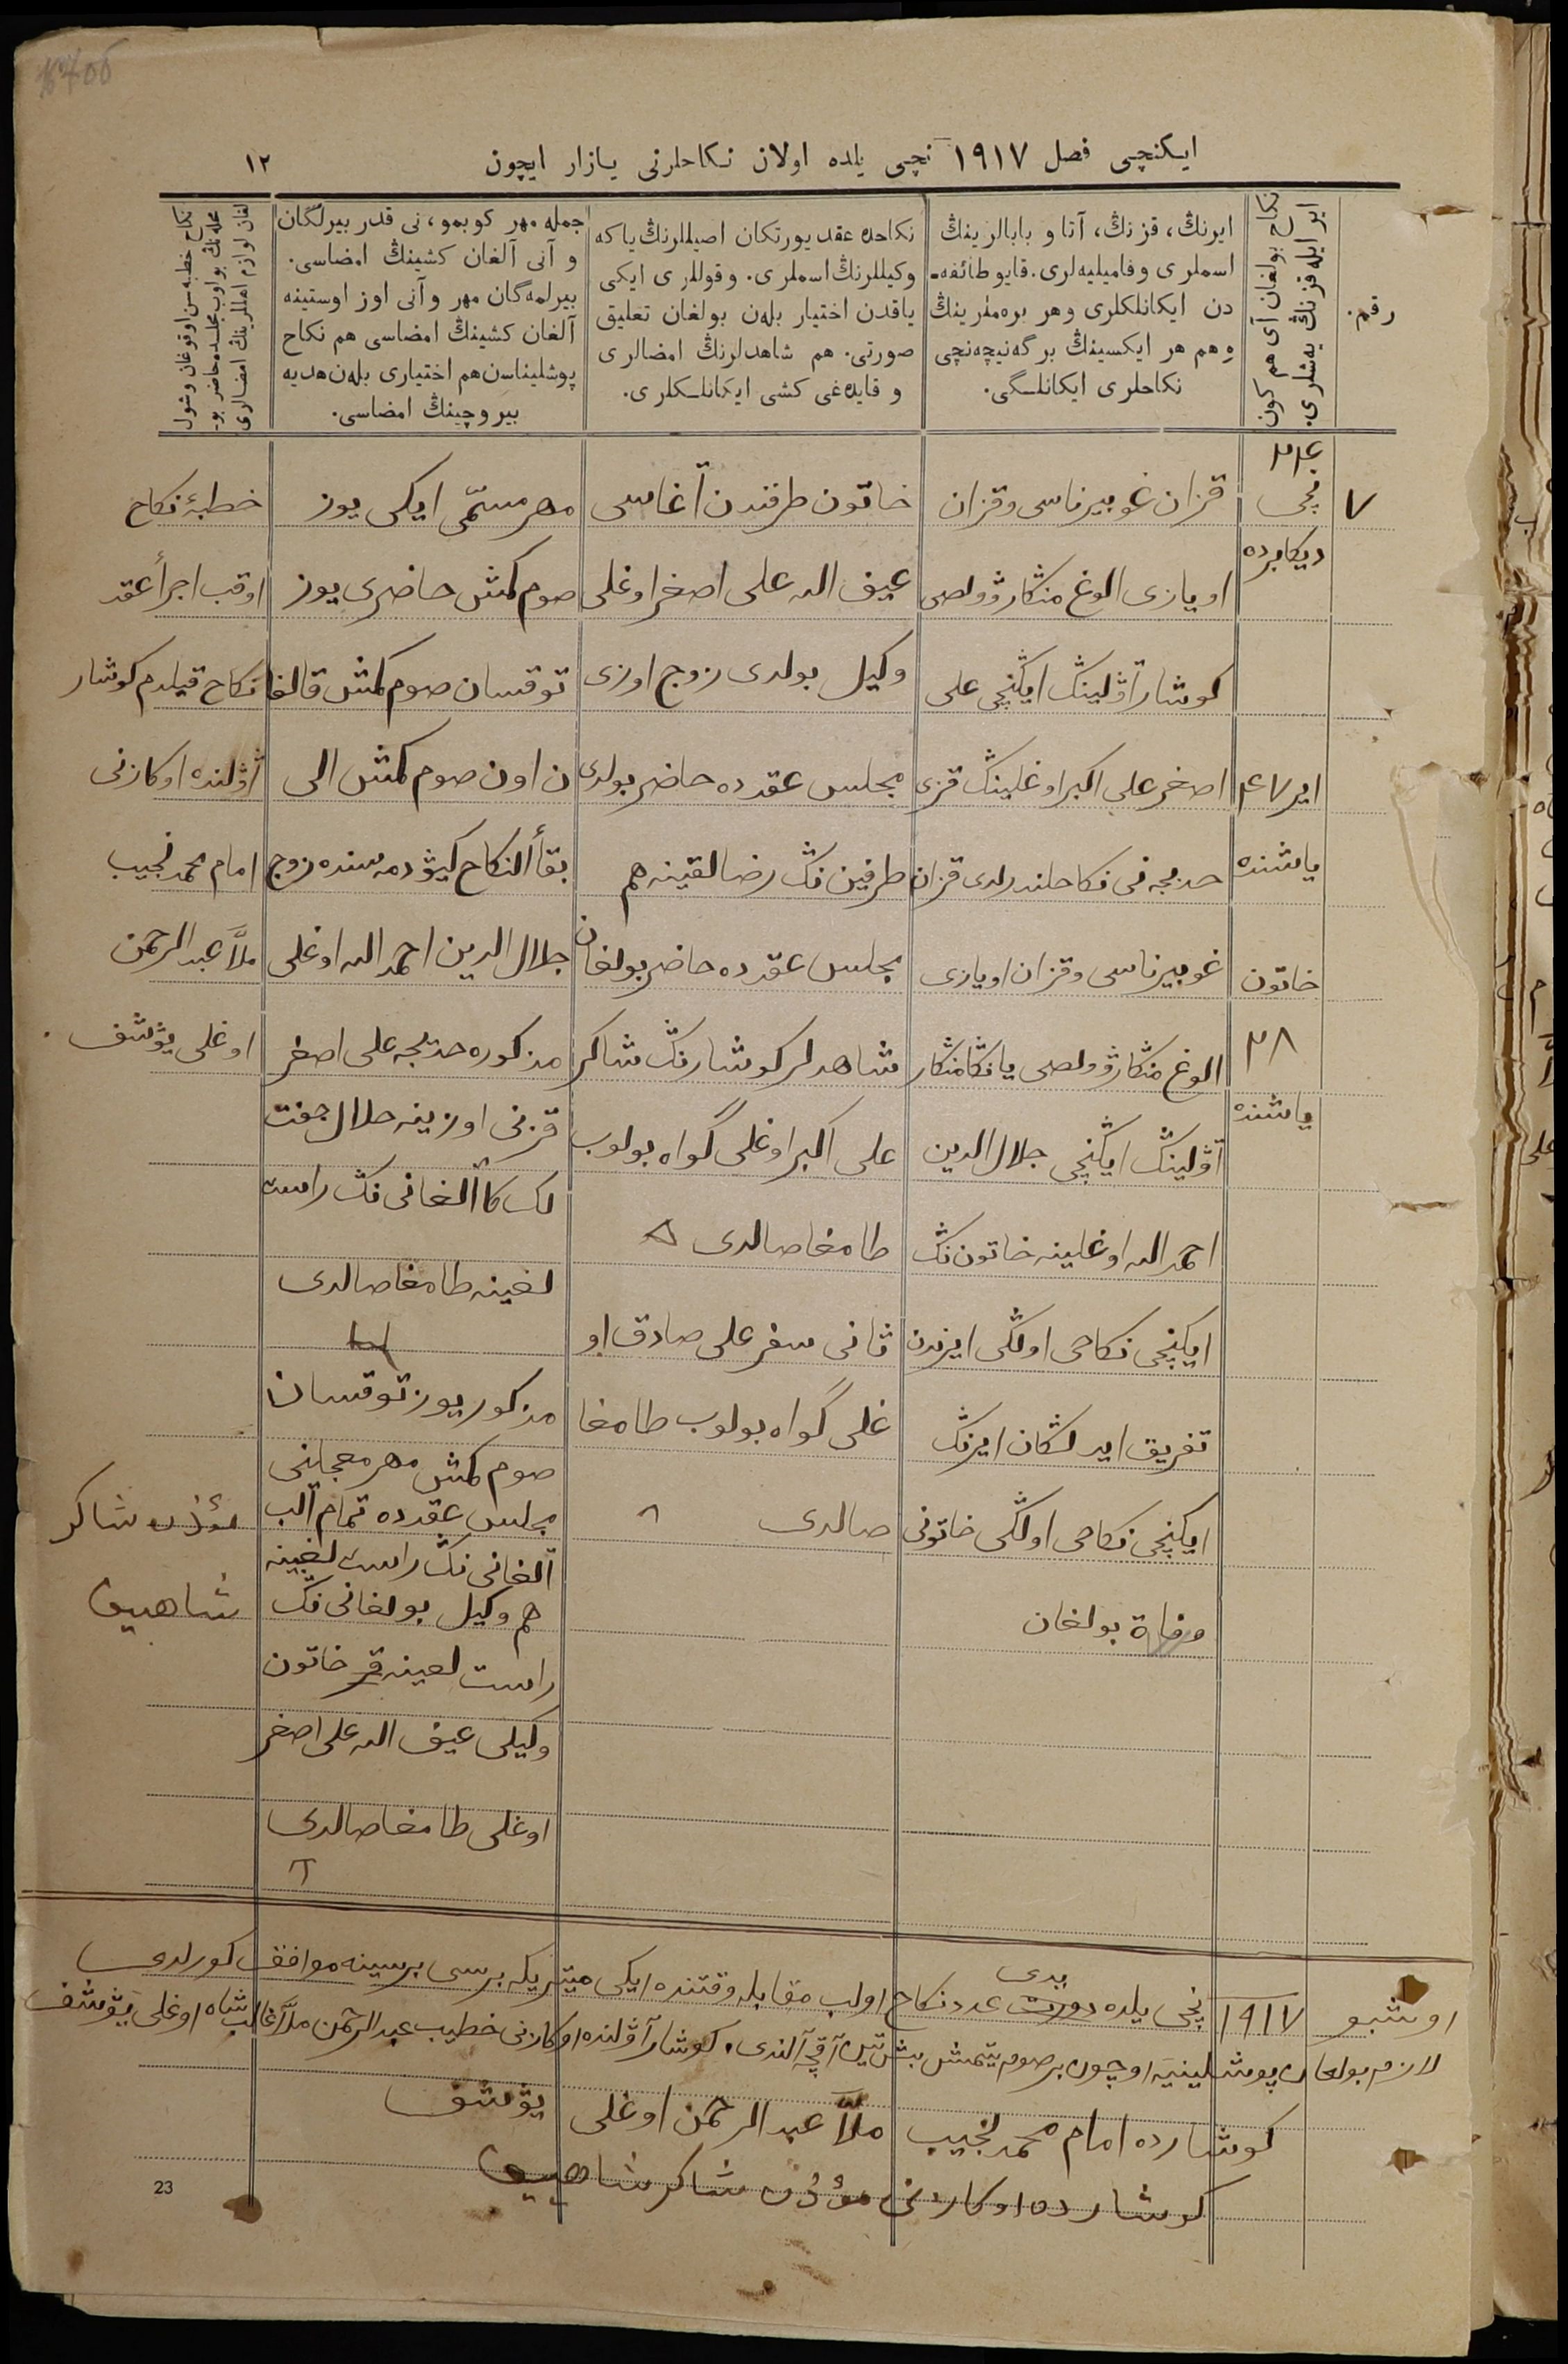 ایکنچی فصل ١٩١٧ نچی یلده اولان نکاحلرنی یازار ایچون
١٢
رقم.
نکاح بولغان آی هم کون
ایر ایله قزنڭ یه‌شلری.
ایرنڭ، قزنڭ، آتا و بابالرینڭ
اسملری و فامیلیه‌لری. قایو طائفه-
دن ایکانلکلری وهر بره‌ملرینڭ
وهم هر ایکسینڭ برگه نیچه‌نچی
نکاحلری ایکانلـگی.
نکاحده عقد یورتکان اصیللرنڭ یاکه
وکیللرنڭ اسملری. و قوللری ایکی
یاقدن اختیار بله‌ن بولغان تعلیق
صورتی. هم شاهدلرنڭ امضالری
و قایده‌غی کشی ایکانلـکلری.
جمله مهر کوبمو، نی قدر بیرلگان
و آنی آلغان کشینڭ امضاسی.
بیرلمه‌گان مهر و آنی اوز اوستینه
آلغان کشینڭ امضاسی هم نکاح
پوشلیناسن هم اختیاری بله‌ن هدیه
بیروچینڭ امضاسی.
نکاح خطبه‌سن اوقوغان و شول
محله‌نڭ بولوب مجلسده حاضر بو-
لغان لوازم اهللرینڭ امضالری
٧
٢٤
نچی
دیکابرده
ایر ٤٧
یاشنده
خاتون
٣٨
یاشنده
قزان غوبیرناسی و قزان
اویازی الوغ منڭار وولصی
کوشار آولینڭ ایکنچی علی
اصغر علی اکبر اوغلینڭ قزی
خدیجه نی نکاحلندرلدی قزان
غوبیرناسی و قزان اویازی
الوغ منڭار وولصی یانڭا منڭار
آولینڭ ایکنچی جلال الدین
احمد الله اوغلینه خاتون نڭ
ایکنچی نکاحی اولگی ایرندن
تفریق ایدلگان ایرنڭ
ایکنچی نکاحی اولگی خاتونی
وفاة بولغان
خاتون طرفندن آغاسی
عیف الله علی اصغر اوغلی
وکیل بولدی زوج اوزی
مجلس عقدده حاضر بولدی
طرفین نڭ رضالقینه هم
مجلس عقدده حاضر بولغان
شاهدلر کوشارنڭ شاکر
علی اکبر اوغلی گواه بولوب
طامغا صالدی
ثانی سفر علی صادق او
غلی گواه بولوب طامغا
صالدی
مهر مسمّی ایکی یوز
صوم کمش حاضری یوز
توقسان صوم کمش قالغا
ن اون صوم کمش الی
بقأ النکاح کیوده‌مه‌سنده زوج
جلال الدین احمد الله اوغلی
مذکوره خدیجه علی اصغر
قزنی اوزینه حلال جفت
لک کا آلغانی نڭ راست
لغینه طامغا صالدی
مذکور یوز توقسان
صوم کمش مهر معجلنی
مجلس عقدده تمام آلب
آلغانی نڭ راست لغینه
هم وکیل بولغانی نڭ
راست لغینه قز خاتون
وکیلی عیف الله علی اصغر
اوغلی طامغا صالدی
خطبهٔ نکاح
اوقب اجرأ عقد
نکاح قیلدم کوشار
آولنده اوکازنی
امام محمد نجیب
ملاّ عبد الرحمن
اوغلی یوشف
مؤذن شاکر
اوشبو ١٩١٧ نچی یلده یدی عدد نکاح اولب مقابله وقتنده ایکی میتریکه برسی برسینه موافق کورلدی
لازم بولغان پوشلینیه اوچون بر صوم یتمش بش تین آقچه آلندی. کوشار آولنده اوکازنی خطیب عبد الرحمن ملاّ غالب شاه اوغلی یوشف
کوشارده امام محمد نجیب ملاّ عبد الرحمن اوغلی یوشف
کوشارده اوکازنی مؤذن شاکر
23